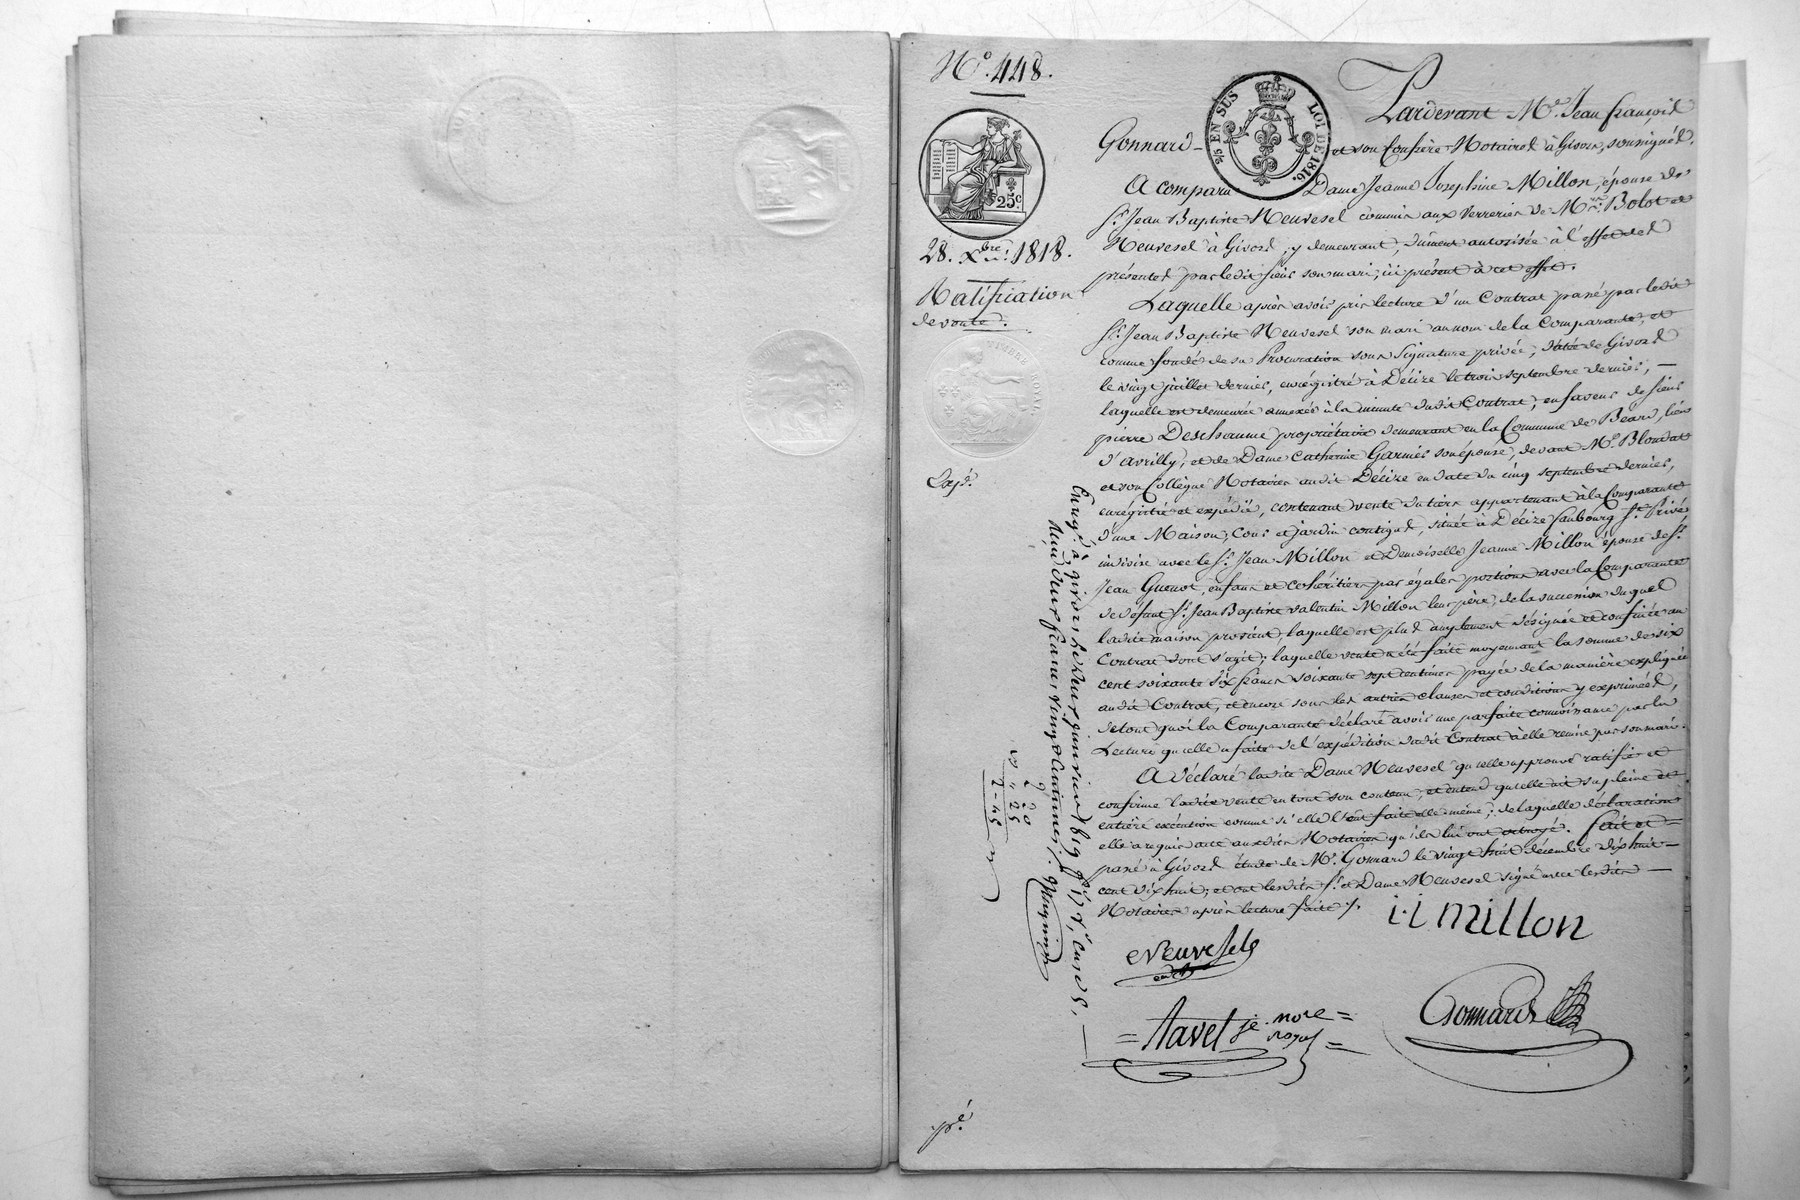 N.º 448.
25.c
28. Xbre 1818.
Ratification
de vente.
TIMBRE ROYAL
Exp.é
25 EN SUS LOI DE 1816.
Pardevant M.e Jean françois
Gonnard et son Confrère Notaires à Givors, soussignés.
A comparu Dame Jeanne Josephine Millon, épouse de
S.r Jean Baptiste Neuvesel commis aux verreries de M.rs Bolot et
Neuvesel à Givors, y demeurant, dûment autorisée à l'effet des
présentes par ledit sieur son mari, ici présent à cet effet.
Laquelle après avoir pris lecture d'un Contrat passé par ledit
S.r Jean Baptiste Neuvesel son mari au nom de la Comparante, et
comme fondé de sa Procuration sous signature privée, datée de Givors
le vingt juillet dernier, enrégistré à Décize le trois septembre dernier, —
laquelle est demeurée annexée à la minute dudit Contrat, en faveur de sieur
pierre Deschaume propriétaire demeurant en la Commune de Béard, lieu
d'avrilly, et de Dame Catherine Garnier son épouse, devant M.e Blondat
et son Collègue Notaires audit Décize en date du cinq septembre dernier,
enregistré et expédié, contenant vente du tiers appartenant à la Comparante
d'une Maison, Cour et jardin contigus, située à Décize faubourg S.t Privé
indivise avec le S.r Jean Millon et Demoiselle Jeanne Millon épouse de S.r
Jean Guenot, enfans et cohéritiers par égales portions avec la Comparante
de défunt S.r Jean Baptiste valentin Millon leur père, de la succession duquel
ladite maison provient, laquelle est plus amplement désignée et confinée au
Contrat dont s'agit; laquelle vente a été faite moyennant la somme de six
cent soixante six francs soixante sept centimes payée de la manière expliquée
audit Contrat, et encore sous les autres clauses et conditions y exprimées,
de tout quoi la Comparante déclare avoir une parfaite connoissance par la
Lecture qu'elle a faite de l'expédition dudit Contrat à elle remise par son mari.
A déclaré ladite Dame Neuvesel qu'elle approuve ratifie et
confirme ladite vente en tout son contenu, et entend qu'elle ait sa pleine et
entière exécution comme si elle l'eut faite elle même; de laquelle déclaration
elle a requis acte auxdits Notaires qu'ils lui ont octroyé. fait et
passé à Givors étude de M.e Gonnard le vingt huit décembre dix huit
cent dix huit; et ont lesdits S.r et Dame Neuvesel signé avec lesdits —
Notaires après lecture faite ./.
Enreg.é à givors, le deux janvier 1819 f.o 17, v.o, Case 5,
Reçu deux francs vingt centimes.
2 20
25
2 - 45
i·i millon
Neuvesele
Gonnard
= Tavel je. no re =
royal =
p.é